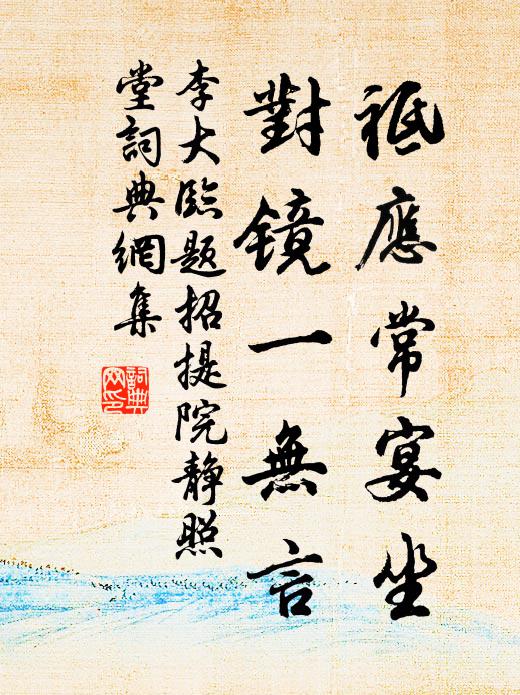 祗應常宴坐
對镜一無言
李大臨题招提院静照
堂詞典網集
詞典
网印